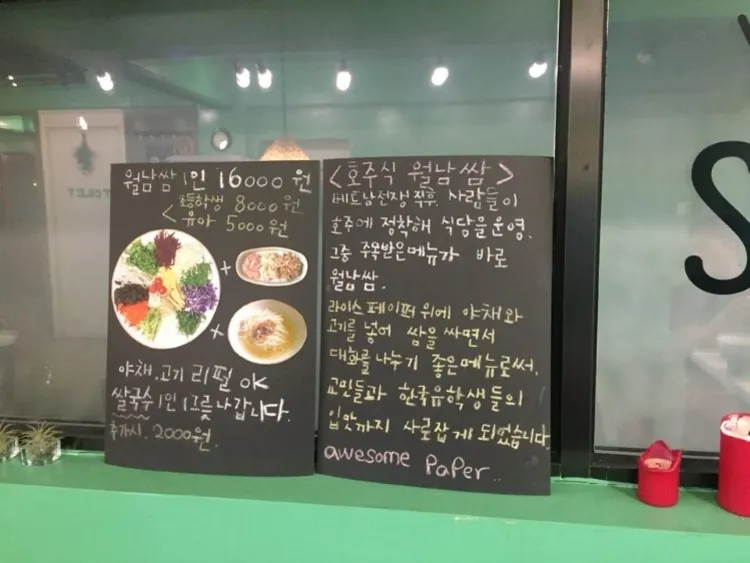 월남쌈 1인 16000원
초등학생 8000원
< 유아 5000원
+
+
야채.고기 리필 OK
쌀국수 1인 1그릇 나갑니다.
추가시. 2000원.
<호주식 월남쌈>
베트남전쟁 직후, 사람들이
호주에 정착해 식당을 운영.
그중 주목받은메뉴가 바로
월남쌈.
라이스 페이퍼 위에 야채와
고기를 넣어 쌈을 싸면서
대화를 나누기 좋은메뉴로써.
교민들과 한국유학생들의
입맛까지 사로잡게 되었습니다
awesome PaPer..
S